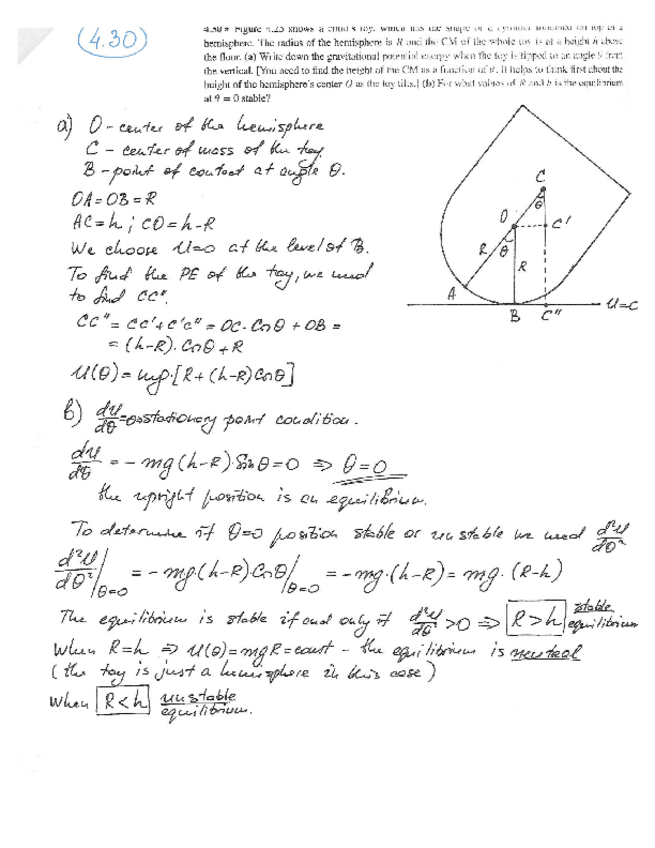 (4.30)
4.30 * Figure 4.25 shows a child's toy, which has the shape of a cylinder mounted on top of a
hemisphere. The radius of the hemisphere is R and the CM of the whole toy is at a height h above
the floor. (a) Write down the gravitational potential energy when the toy is tipped to an angle θ from
the vertical. [You need to find the height of the CM as a function of θ. It helps to think first about the
height of the hemisphere's center O as the toy tilts.] (b) For what values of R and h is the equilibrium
at θ = 0 stable?
a) O - center of the hemisphere
C - center of mass of the toy
B - point of contact at angle θ.
OA = OB = R
AC = h ; CO = h-R
We choose U=0 at the level of B.
To find the PE of the toy, we need
to find CC".
CC" = CC' + C'C" = OC · Cosθ + OB =
= (h-R) · Cosθ + R
U(θ) = mg·[R + (h-R)Cosθ]
C
θ
O
C'
R
θ
R
A
B
C"
U=0
b) dU/dθ = 0 stationary point condition.
dU/dθ = - mg(h-R)·Sinθ = 0 ⇒ θ=0
the upright position is an equilibrium.
To determine if θ=0 position stable or unstable we need d²U/dθ²
d²U/dθ²|θ=0 = - mg(h-R)Cosθ|θ=0 = - mg·(h-R) = mg·(R-h)
The equilibrium is stable if and only if d²U/dθ² > 0 ⇒ R > h stable equilibrium
When R=h ⇒ U(θ) = mgR = const - the equilibrium is neutral
(the toy is just a hemisphere in this case)
When R < h unstable equilibrium.